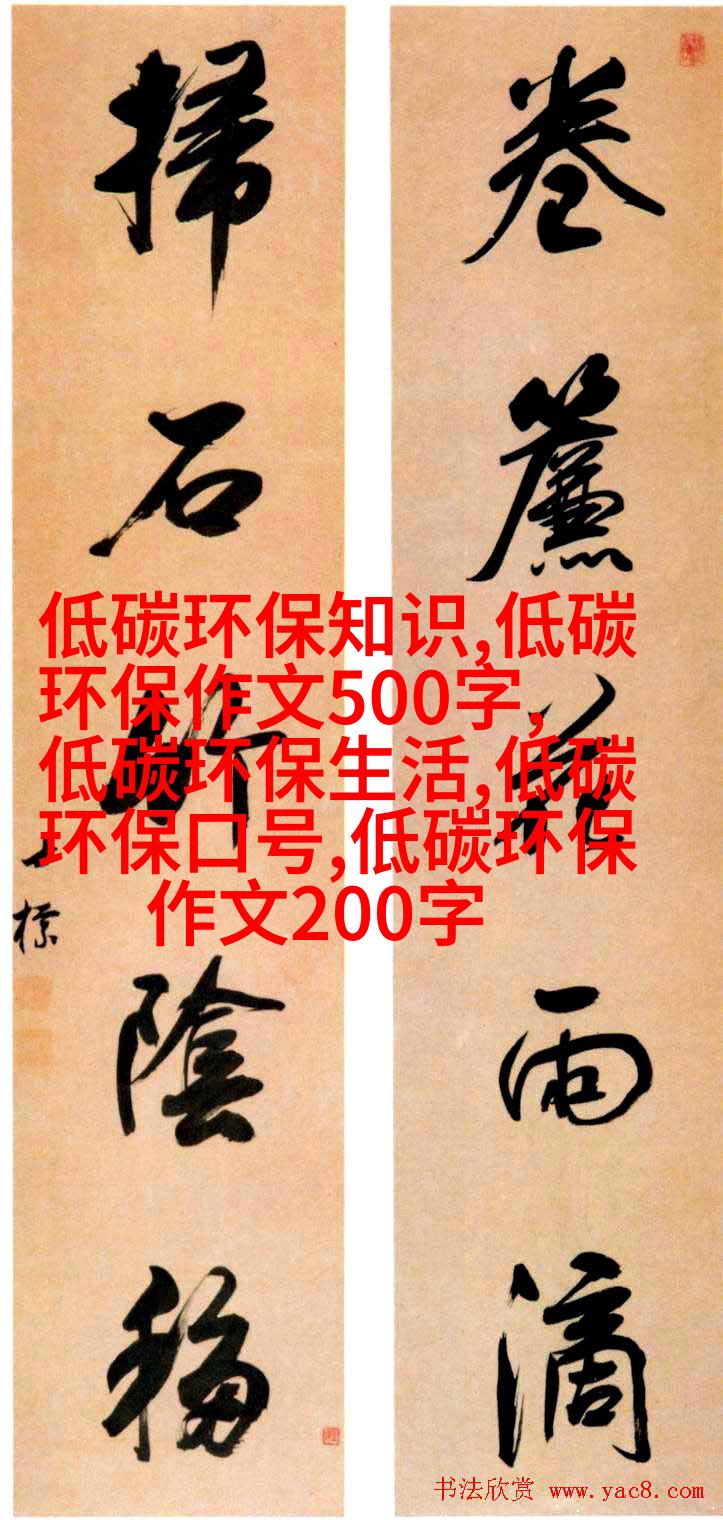 卷簾花雨滴
掃石竹陰移
士標
低碳环保知识,低碳
环保作文500字,
低碳环保生活,低碳
环保口号,低碳环保
作文200字
书法欣赏 www.yac8.com